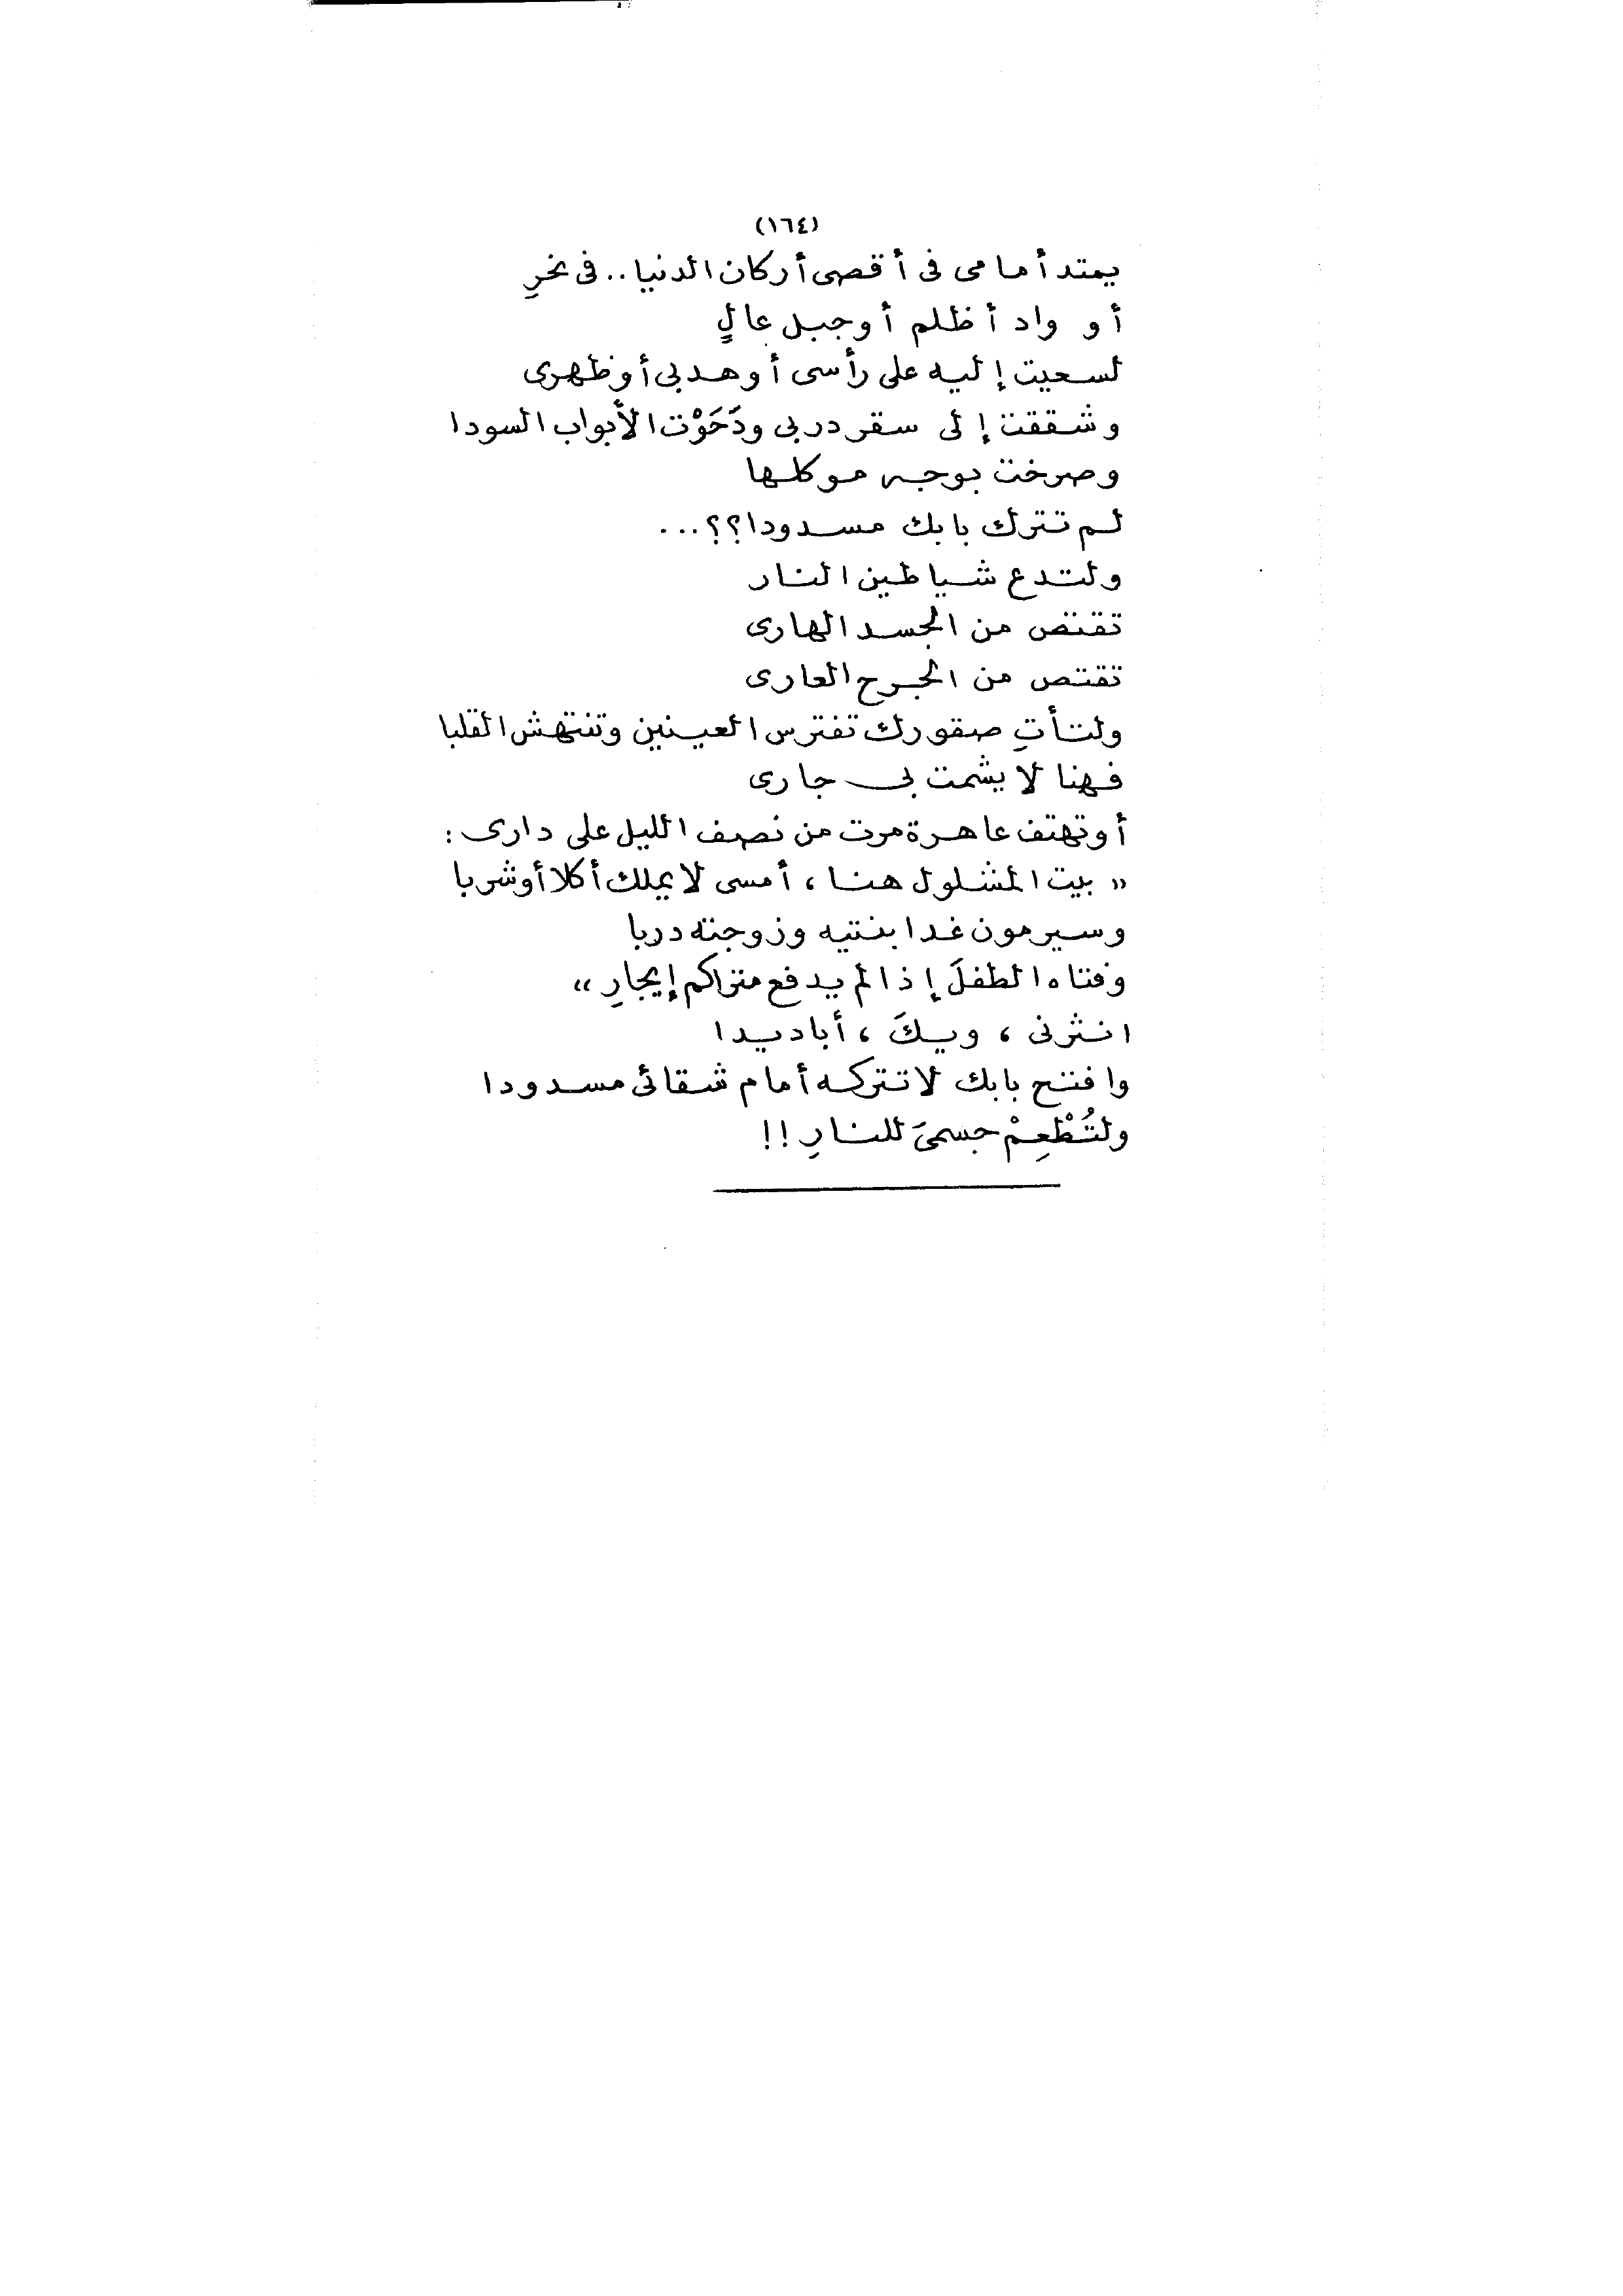 (١٦٤)
يمتد أمامى فى أقصى أركان الدنيا.. فى نخرِ
أو واد أظلم أو جبل عالٍ
لسعيت إليه على رأسى أو هدبى أو ظهرى
وشققت إلى سقر دربى ودَحَوْت الأبواب السودا
وصرخت بوجه موكلها
لم تترك بابك مسدودا؟؟...
ولتدع شياطين النار
تقتص من الجسد الهارى
تقتص من الجرح العارى
ولتأتِ صقورك تفترس العينين وتنتهش القلبا
فهنا لا يشمت بى جارى
أو تهتف عاهرة مرت من نصف الليل على دارى :
« بيت المشلول هنا ، أمسى لا يملك أكلا أو شربا
وسيرمون غدا بنتيه وزوجته دربا
وفتاه الطفلَ إذا لم يدفع متراكم إيجارِ »
انثرنى ، ويكَ ، أباديدا
وافتح بابك لا تتركه أمام شقائى مسدودا
ولتُطْعِمْ جسمىَ للنارِ !!